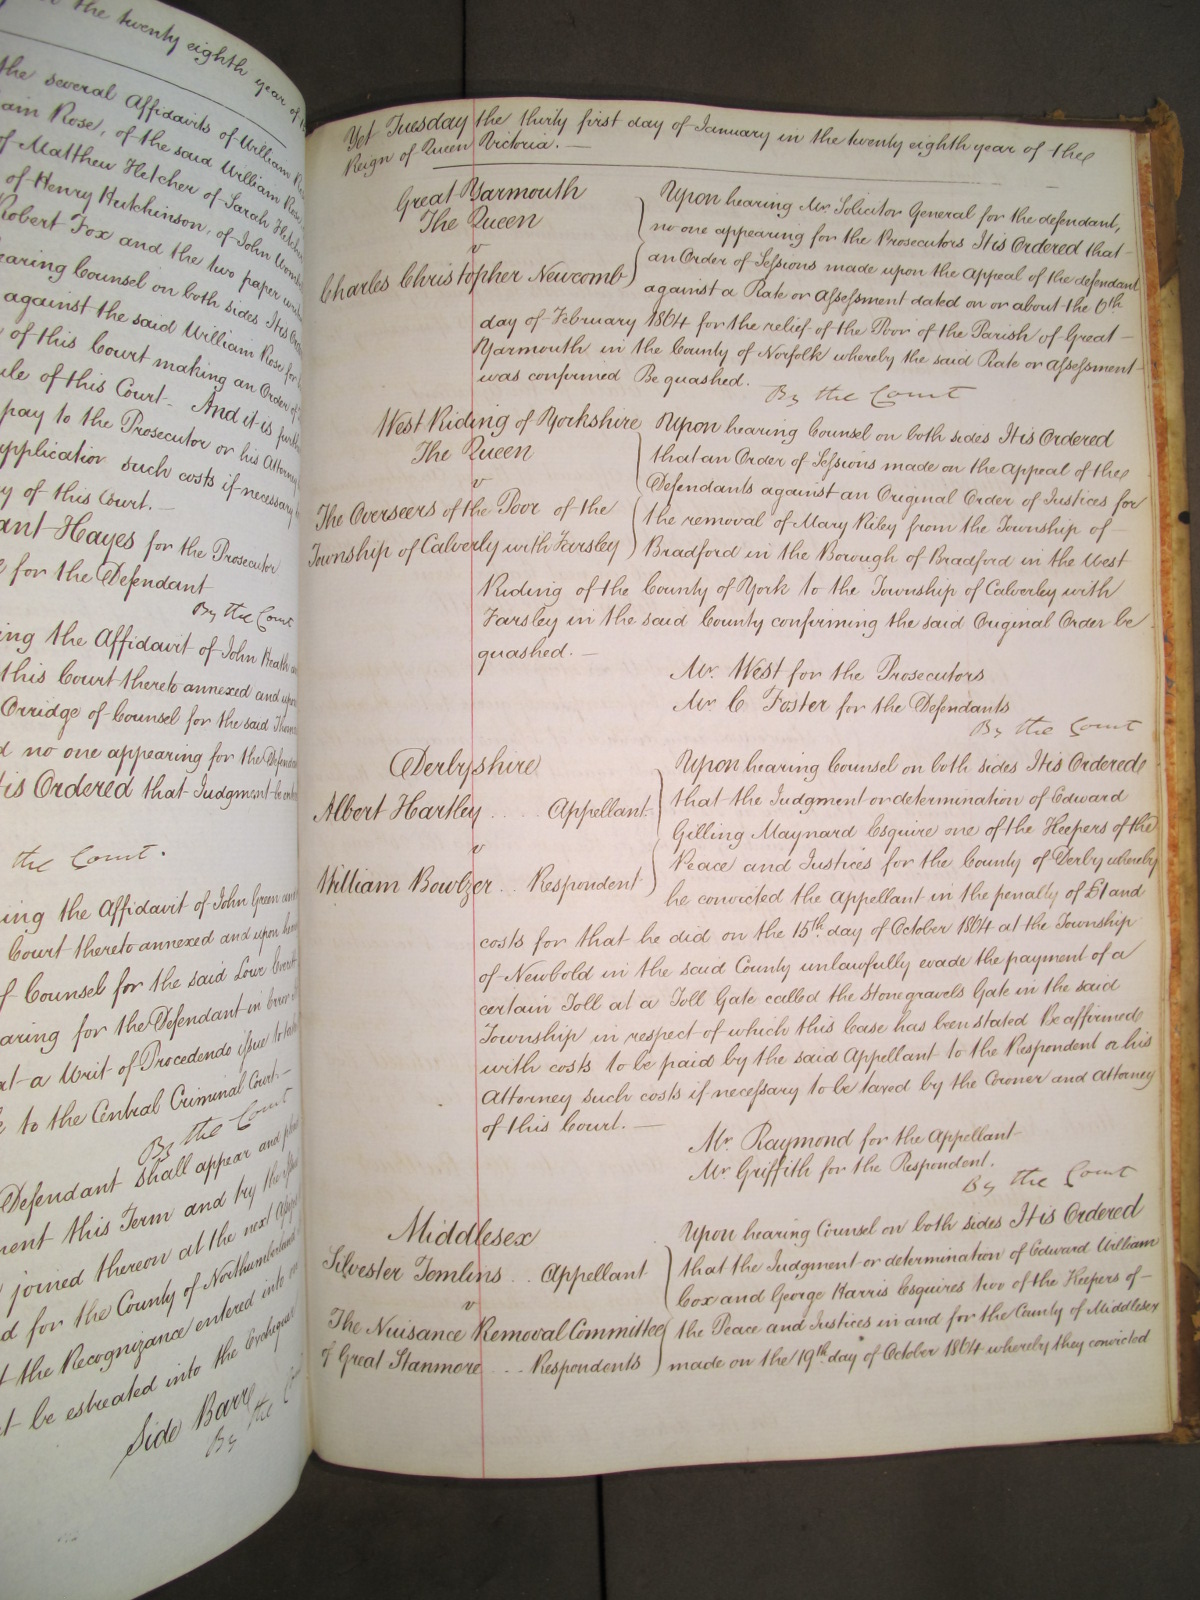 the twenty eighth year of
the several Affidavits of William
Rose, of the said William Rose
of Matthew Hetcher of Sarah
of Henry Hutchinson, of John
Robert Fox and the two paper
hearing Counsel on both sides It is
against the said William Rose for
of this Court making an Order of
Rule of this Court. And it is
pay to the Prosecutor or his Attorney
application such costs if necessary
of this Court.
Hayes for the Prosecutor
for the Defendant
By the Court
the Affidavit of John Heath
this Court thereto annexed and upon
Orridge of Counsel for the said
no one appearing for the
It is Ordered that Judgment be
the Court.
the Affidavit of John Green
Court thereto annexed and upon
of Counsel for the said
for the Defendant in
a Writ of Procedendo issue to
to the Central Criminal Court.
By the Court
Defendant shall appear and
this Term and try the
joined thereon at the next
for the County of Northumberland
the Recognizance entered into
be estreated into the Exchequer
Side Barr
By the
Yet Tuesday the thirty first day of January in the twenty eighth year of the
Reign of Queen Victoria. —
Great Yarmouth
The Queen
v
Charles Christopher Newcomb
Upon hearing Mr Solicitor General for the defendant,
no one appearing for the Prosecutors It is Ordered that
an Order of Sessions made upon the Appeal of the defendant
against a Rate or Assessment dated on or about the 6th
day of February 1864 for the relief of the Poor of the Parish of Great
Yarmouth in the County of Norfolk whereby the said Rate or Assessment
was confirmed Be quashed.
By the Court
West Riding of Yorkshire
The Queen
v
The Overseers of the Poor of the
Township of Calverly with Farsley
Upon hearing Counsel on both sides It is Ordered
that an Order of Sessions made on the Appeal of the
Defendants against an Original Order of Justices for
the removal of Mary Riley from the Township of
Bradford in the Borough of Bradford in the West
Riding of the County of York to the Township of Calverley with
Farsley in the said County confirming the said Original Order be
quashed. —
Mr. West for the Prosecutors
Mr C Foster for the Defendants
By the Court
Derbyshire
Albert Hartley .... Appellant
v
William Bowlzer .. Respondent
Upon hearing Counsel on both sides It is Ordered
that the Judgment or determination of Edward
Gilling Maynard Esquire one of the Keepers of the
Peace and Justices for the County of Derby whereby
he convicted the Appellant in the penalty of £1 and
costs for that he did on the 15th day of October 1864 at the Township
of Newbold in the said County unlawfully evade the payment of a
certain Toll at a Toll Gate called the Stonegravels Gate in the said
Township in respect of which this Case has been stated Be affirmed
with costs to be paid by the said Appellant to the Respondent or his
Attorney such costs if necessary to be taxed by the Coroner and Attorney
of this Court. —
Mr. Raymond for the Appellant
Mr Griffith for the Respondent.
By the Court
Middlesex
Silvester Tomlins .. Appellant
v
The Nuisance Removal Committee
of Great Stanmore ... Respondents
Upon hearing Counsel on both sides It is Ordered
that the Judgment or determination of Edward William
Cox and George Harris Esquires two of the Keepers of
the Peace and Justices in and for the County of Middlesex
made on the 19th day of October 1864 whereby they convicted